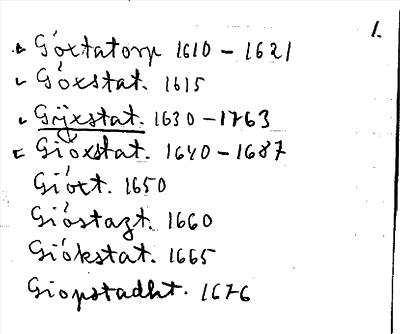 1.
Góxtatorp 1610 – 1621
Góxstat. 1615
Gijxstat. 1630 – 1763
Gióxstat. 1640 – 1687
Gióxt. 1650
Gióstazt. 1660
Giókstat. 1665
Giopstadht. 1676